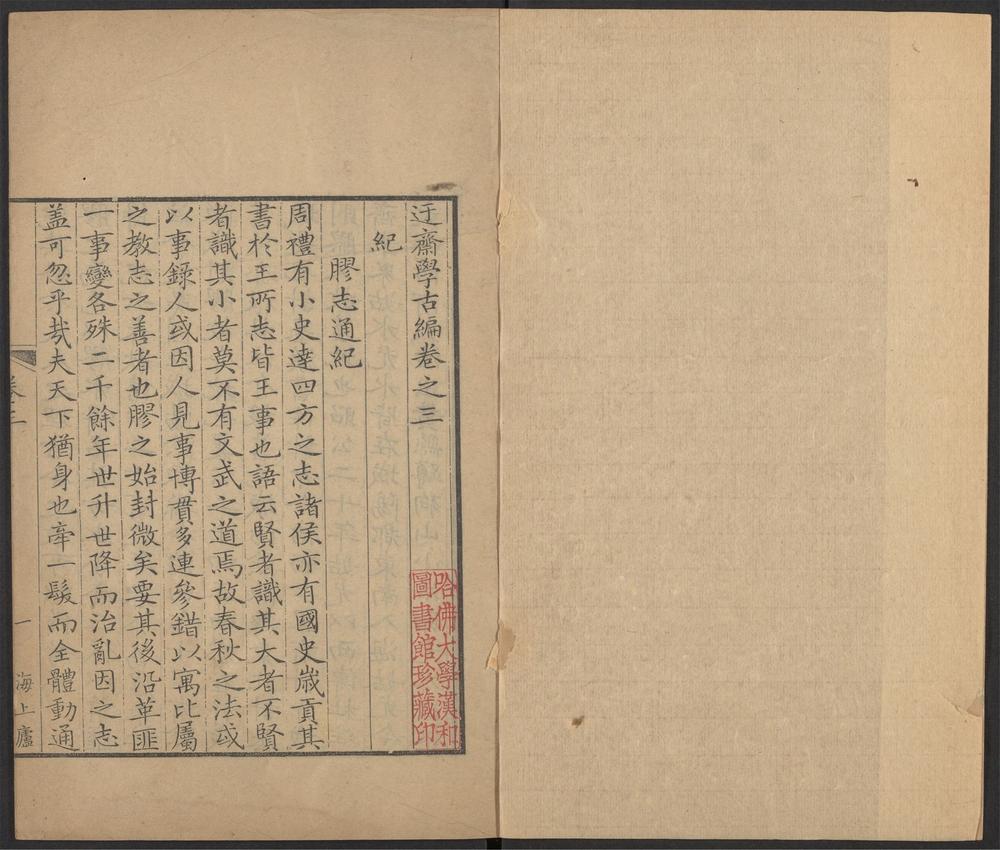 迂齋學古編卷之三
紀
膠志通紀
周禮有小史達四方之志諸侯亦有國史歲貢其
書於王所志皆王事也語云賢者識其大者不賢
者識其小者莫不有文武之道焉故春秋之法或
以事錄人或因人見事博貫多連參錯以寓比屬
之教志之善者也膠之始封微矣要其後沿革匪
一事變各殊二千餘年世升世降而治亂因之志
盖可忽乎哉夫天下猶身也牽一髮而全體動通
卷三
一
海上廬
哈佛大學漢和
圖書館珍藏印